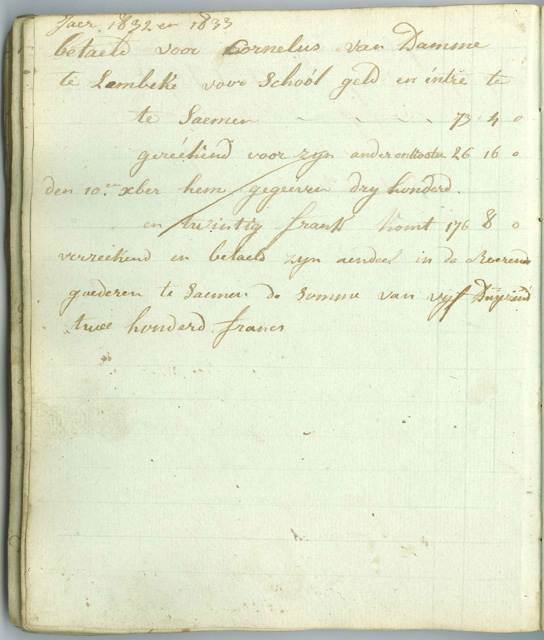 Jaer 1832 en 1833
betaeld voor Cornelus van Damme
te Lembeke voor School geld en intré te
te Saemen - - - - 73 4 0
geréékend voor zyn ander onkosten 26 16 0
den 10.en xber hem gegeeven dry honderd.
en twintig frank komt 176 8 0
verreekend en betaeld zyn aendeel in de Roerende
goederen te Saemen de Somme van vyf Duyzend
twee honderd francs